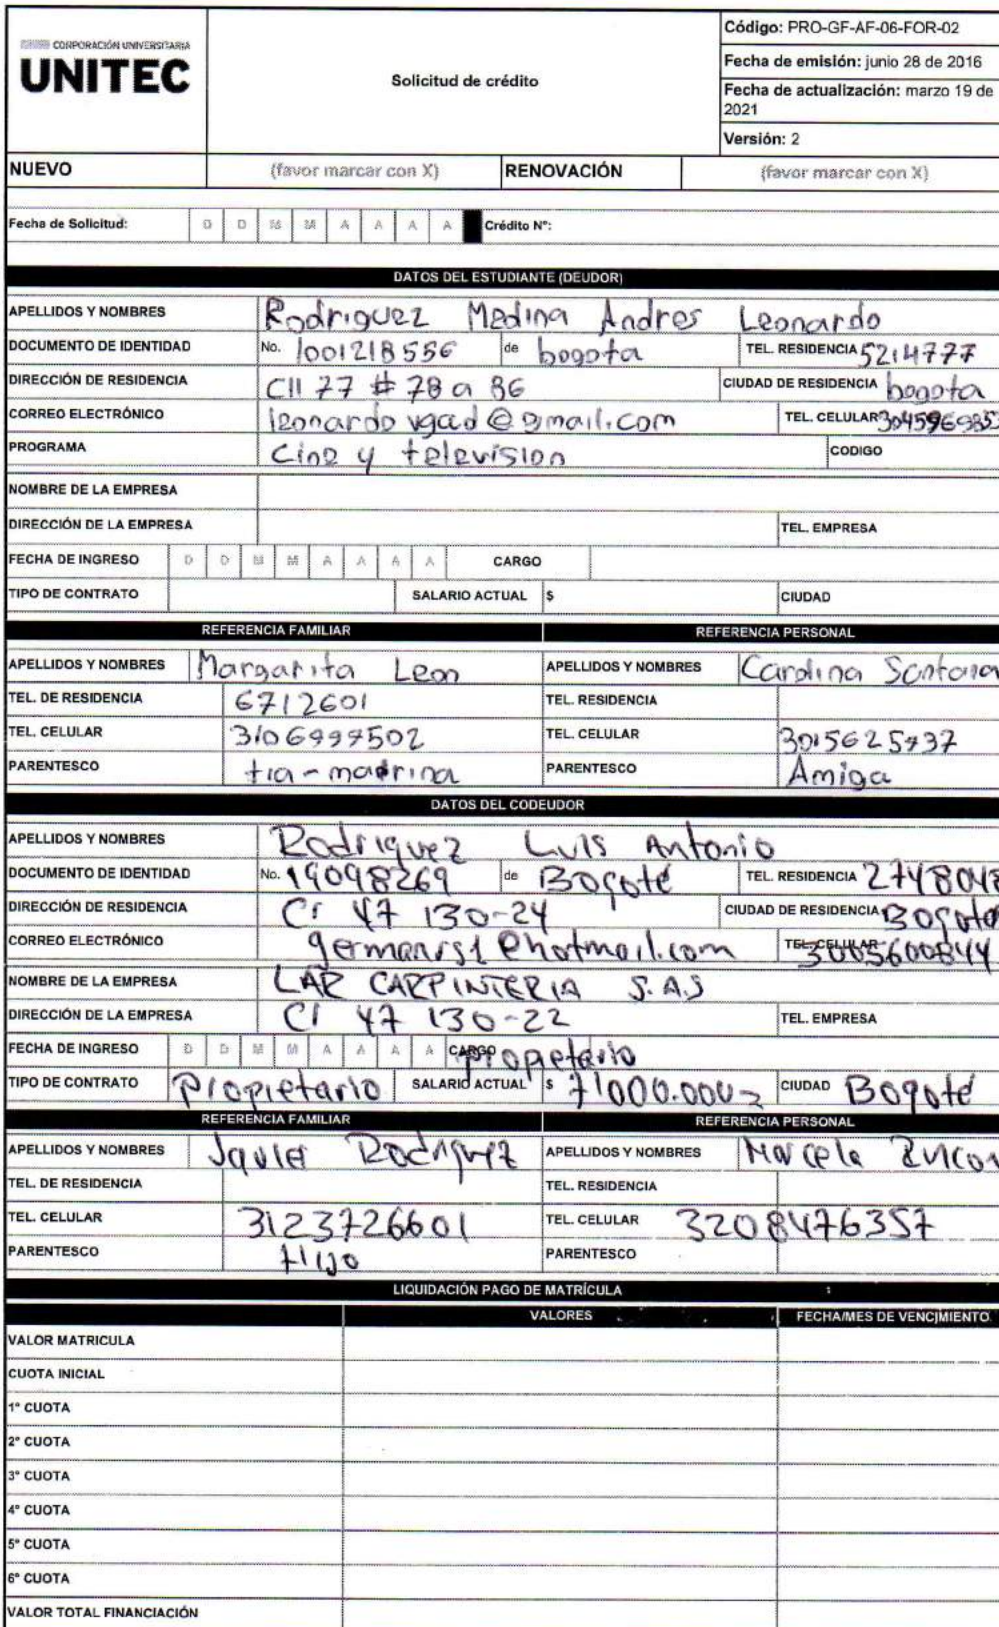 CORPORACIÓN UNIVERSITARIA
UNITEC
Solicitud de crédito
Código: PRO-GF-AF-06-FOR-02
Fecha de emisión: junio 28 de 2016
Fecha de actualización: marzo 19 de
2021
Versión: 2
NUEVO (favor marcar con X) RENOVACIÓN (favor marcar con X)
Fecha de Solicitud: D D M M A A A A Crédito N°:
DATOS DEL ESTUDIANTE (DEUDOR)
APELLIDOS Y NOMBRES Rodriguez Medina Andres Leonardo
DOCUMENTO DE IDENTIDAD No. 1001218556 de bogota TEL. RESIDENCIA 5214777
DIRECCIÓN DE RESIDENCIA Cll 77 # 78 a 86 CIUDAD DE RESIDENCIA bogota
CORREO ELECTRÓNICO leonardo vgad@gmail.com TEL. CELULAR
PROGRAMA Cine y television CODIGO
NOMBRE DE LA EMPRESA
DIRECCIÓN DE LA EMPRESA TEL. EMPRESA
FECHA DE INGRESO D D M M A A A A CARGO
TIPO DE CONTRATO SALARIO ACTUAL $ CIUDAD
REFERENCIA FAMILIAR REFERENCIA PERSONAL
APELLIDOS Y NOMBRES Margarita Leon APELLIDOS Y NOMBRES Carolina
TEL. DE RESIDENCIA 6712601 TEL. RESIDENCIA
TEL. CELULAR TEL. CELULAR
PARENTESCO tia-madrina PARENTESCO Amiga
DATOS DEL CODEUDOR
APELLIDOS Y NOMBRES Rodriguez Luis Antonio
DOCUMENTO DE IDENTIDAD No. 19098269 de Bogotá TEL. RESIDENCIA 2748048
DIRECCIÓN DE RESIDENCIA Cr 47 130-24 CIUDAD DE RESIDENCIA Bogotá
CORREO ELECTRÓNICO germanrs1@hotmail.com TEL. CELULAR 3005600844
NOMBRE DE LA EMPRESA LAR CARPINTERIA S.A.S
DIRECCIÓN DE LA EMPRESA Cr 47 130-22 TEL. EMPRESA
FECHA DE INGRESO D D M M A A A A CARGO Propietario
TIPO DE CONTRATO Propietario SALARIO ACTUAL $ CIUDAD Bogotá
REFERENCIA FAMILIAR REFERENCIA PERSONAL
APELLIDOS Y NOMBRES Javier Rodriguez APELLIDOS Y NOMBRES Marcela Rincon
TEL. DE RESIDENCIA TEL. RESIDENCIA
TEL. CELULAR 3123726601 TEL. CELULAR 3208476357
PARENTESCO Hijo PARENTESCO
LIQUIDACIÓN PAGO DE MATRÍCULA
VALORES FECHA/MES DE VENCIMIENTO
VALOR MATRICULA
CUOTA INICIAL
1° CUOTA
2° CUOTA
3° CUOTA
4° CUOTA
5° CUOTA
6° CUOTA
VALOR TOTAL FINANCIACIÓN